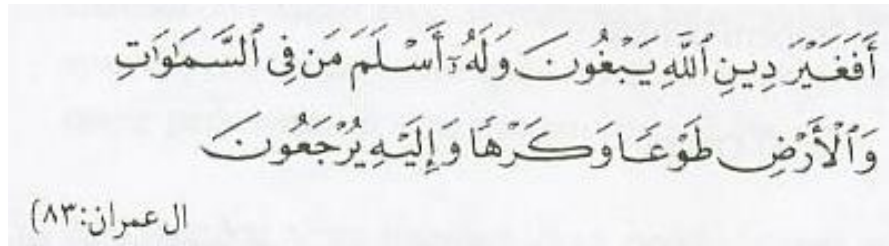 أَفَغَيْرَ دِينِ ٱللَّهِ يَبْغُونَ وَلَهُۥٓ أَسْلَمَ مَن فِى ٱلسَّمَٰوَٰتِ
وَٱلْأَرْضِ طَوْعًا وَكَرْهًا وَإِلَيْهِ يُرْجَعُونَ
ال عمران:٨٣)